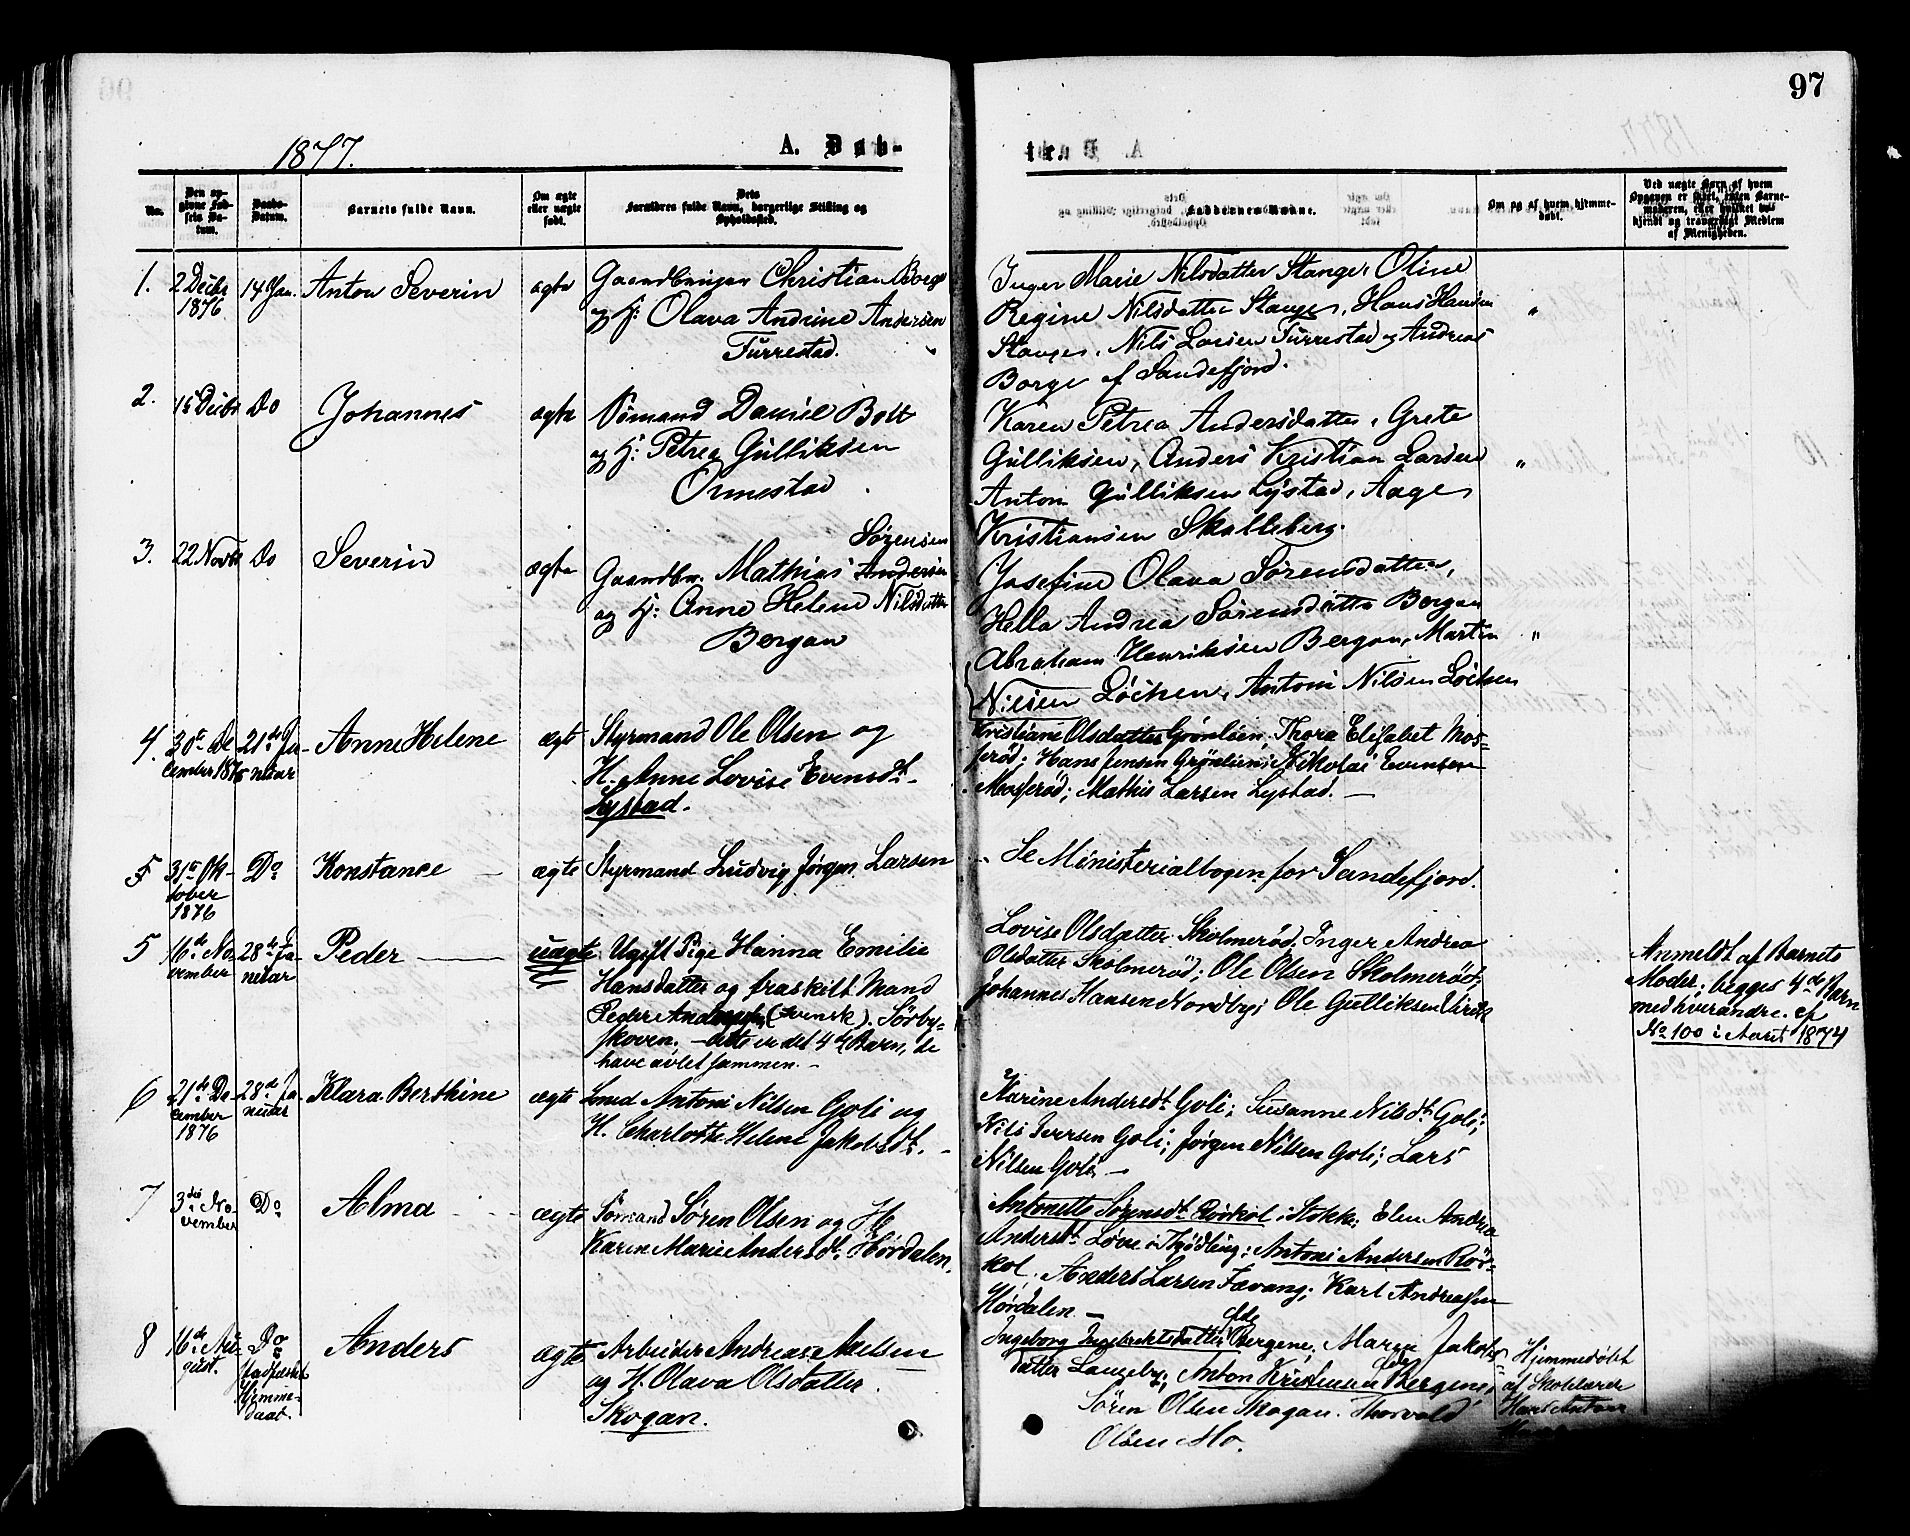 97
1877.
A. Døb-
te.
No.
Den op-
givne Fød-
sels Da-
tum.
Daabs-
Datum.
Barnets fulde Navn.
Om ægte
eller uægte
født.
Dets
Forældres fulde Navn, borgerlige Stilling og
Opholdssted.
Faddernes Navne.
Om og af hvem hjemme-
døbt.
Ved uægte Børn af hvem
Opgaven er skeet, enten Barne-
moderen, eller hvilket be-
kjendt og troværdigt Medlem
af Menigheden.
1.
2 Decbr
1876
14 Jan.
Anton Severin
ægte
Gaardbruger Christian Borge
og H: Olava Andrine Andersen
Furrestad.
Inger Marie Nilsdatter Stange, Oline
Regine Nilsdatter Stange, Hans Hansen
Stange, Nils Larsen Furrestad og Andreas
Borge af Sandefjord.
"
2.
15 Decbr
Do
Johannes
ægte
Sømand Daniel Bott
og H: Petrea Gulliksen
Ormestad
Karen Petrea Andersdatter, Grete
Gulliksen, Anders Kristian Larsen
Anton Gulliksen Lystad, Aage
Kristiansen Skalleberg.
"
3.
22 Novbr
Do
Severin
ægte
Sørensen
Gaardbr. Mathias Andersen
og H: Anne Helene Nilsdatter
Bergan
Josefine Olava Sørensdatter,
Hella Andrea Sørensdatter Bergan
Abraham Henriksen Bergan, Martin
Nilsen Løchen, Antoni Nilsen Løchen
"
4.
30te De-
cember 1876
21de Ja-
nuar
Anne Helene
ægte
Styrmand Ole Olsen og
H. Anne Lovise Evensdt.
Lystad.
Kristiane Olsdatter Grönlien, Thora Elisabet Mos-
serød; Hans Jensen Grönlien; Nikolai Evensen
Mosserød; Mathis Larsen Lystad. —
5
31te Ok-
tober
1876
Do
Konstance —
ægte
Styrmand Ludvig Jørgen Larsen
Se Ministerialbogen for Sandefjord.
5
16de No-
vember
28de Ja-
nuar
Peder —
uægte
Ugift Pige Hanna Emilie
Hansdatter og fraskilt Mand
Peder Andersen (Svensk). Sörby-
skoven. — dette er det 4de Barn, de
have avlet sammen. —
Lovise Olsdatter Skolmerød, Inger Andrea
Olsdatter Skolmerød; Ole Olsen Skolmerød;
Johannes Hansen Nordby; Ole Gulliksen Virik
Anmeldt af Barnets
Moder; begges 4de Barn
med hverandre. cf
No 100 i Aaret 1874
6
21de De-
cember
1876
28de Ja-
nuar
Klara Berthine
ægte
Smed Antoni Nilsen Goli og
H. Charlotte Helene Jakobsdt. —
Karine Andersdt. Goli; Susanne Nilsdt. Goli;
Nils Iversen Goli; Jørgen Nilsen Goli; Lars
Nilsen Goli —
7
3die No-
vember
Do
Alma
ægte
Sømand Sören Olsen og H.
Karen Marie Andersdt. Hördalen.
Antonette Sørensdt. Rörkol i Stokke; Elen Andrea
Andersdt. Løve i Thjödling; Antoni Andersen Rör-
kol; Anders Larsen Fævang; Karl Andreassen
Hördalen —
8
16de Au-
gust.
Do
Stadfæstet
Hjemme-
daab.
Anders
ægte
Arbeider Andreas Axelsen
og H. Olava Olsdatter.
Skogan.
Ingeborg Ingebrektsdatter Bergene; Maren Jakobs-
datter Langeby; Anton Kristensen Bergene,
Sören Olsen Skogan. Thorvald
Olsen Mo.
Hjemmedøbt
af Skolelærer
Hans Anton